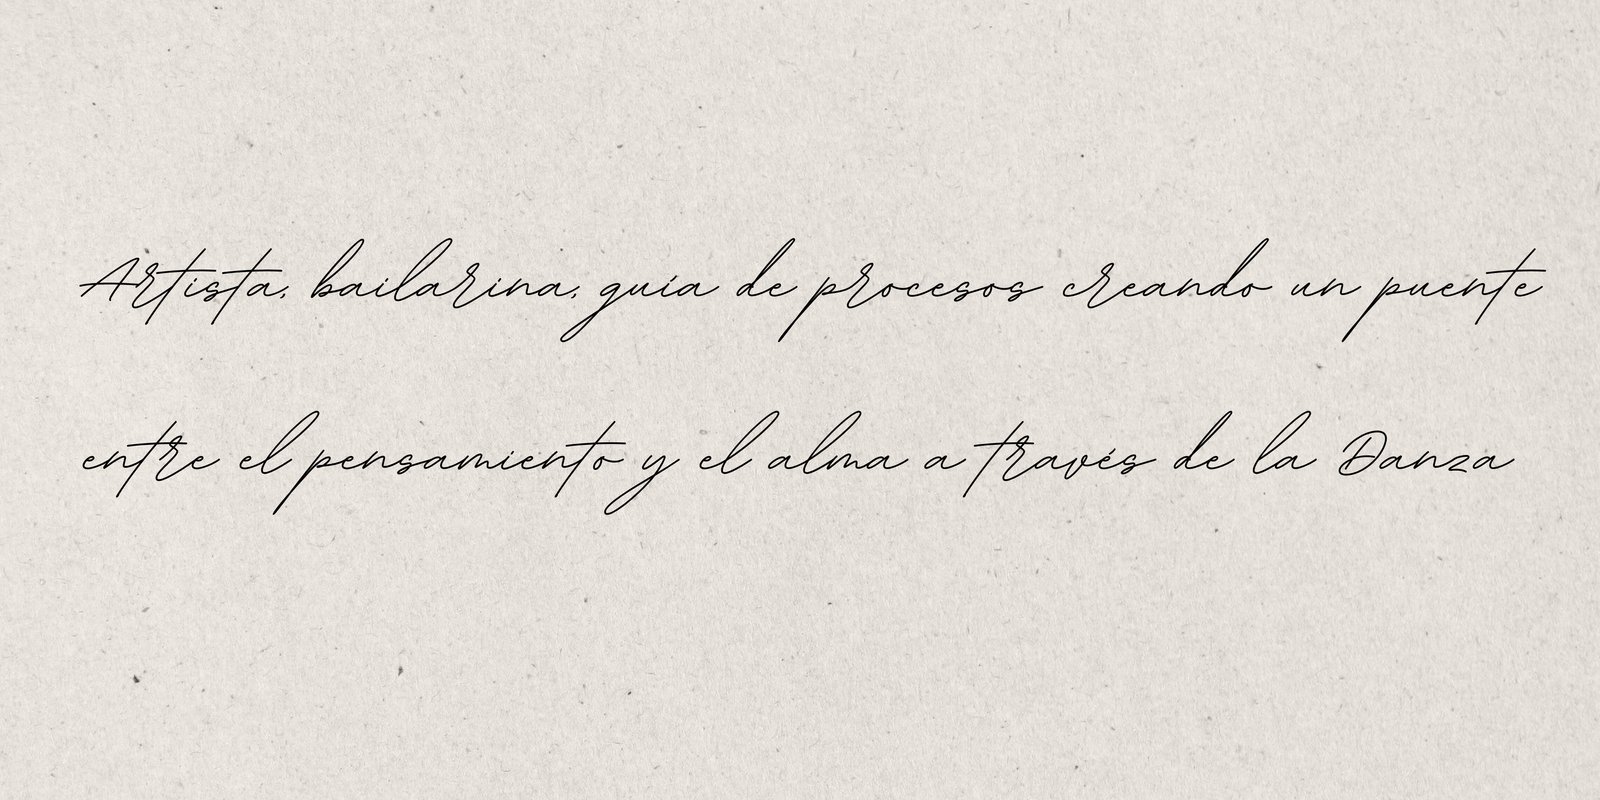 Artista, bailarina, guía de procesos creando un puente
entre el pensamiento y el alma a través de la Danza